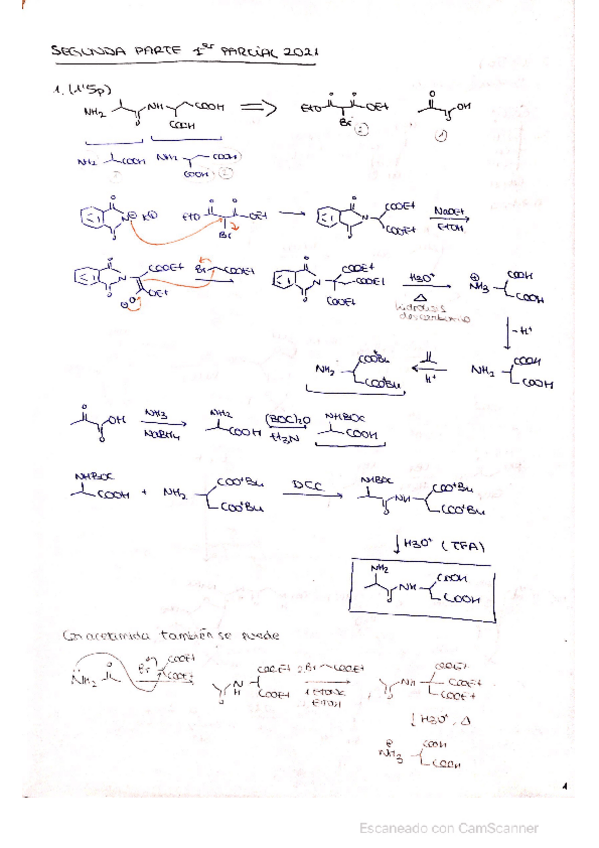 SEGUNDA PARTE 1er PARCIAL 2021
1. (1'5p)
NH2 O NH COOH COOH ⟹ EtO O O OEt Br ② O OH O ①
NH2 COOH NH2 COOH COOH
O N⊖ K⊕ O EtO O O OEt Br → O N O COOEt COOEt NaOEt EtOH
O N O COOEt OEt Br COOEt → O N O COOEt COOEt COOEt H3O+ Δ ⊕NH3 COOH COOH
hidrólisis
-H+
NH2 COOtBu COOtBu H+ NH2 COOH COOH
O OH O NH3 NaBH4 NH2 COOH (BOC)2O Et3N NHBOC COOH
NHBOC COOH + NH2 COOtBu COOtBu DCC NHBOC O NH COOtBu COOtBu
H3O+ (TFA)
NH2 O NH COOH COOH
Con acetamida también se puede
NH2 O Br COOEt COOEt → O N H COOEt COOEt 2. Br COOEt EtOH O NH COOEt COOEt COOEt
H3O+, Δ
⊕NH3 COOH COOH
1
Escaneado con CamScanner